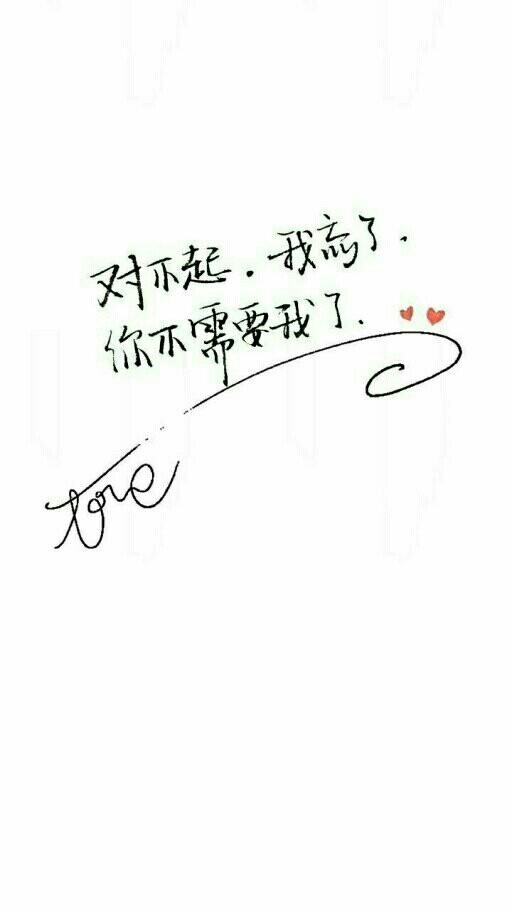 对不起.我忘了.
你不需要我了.